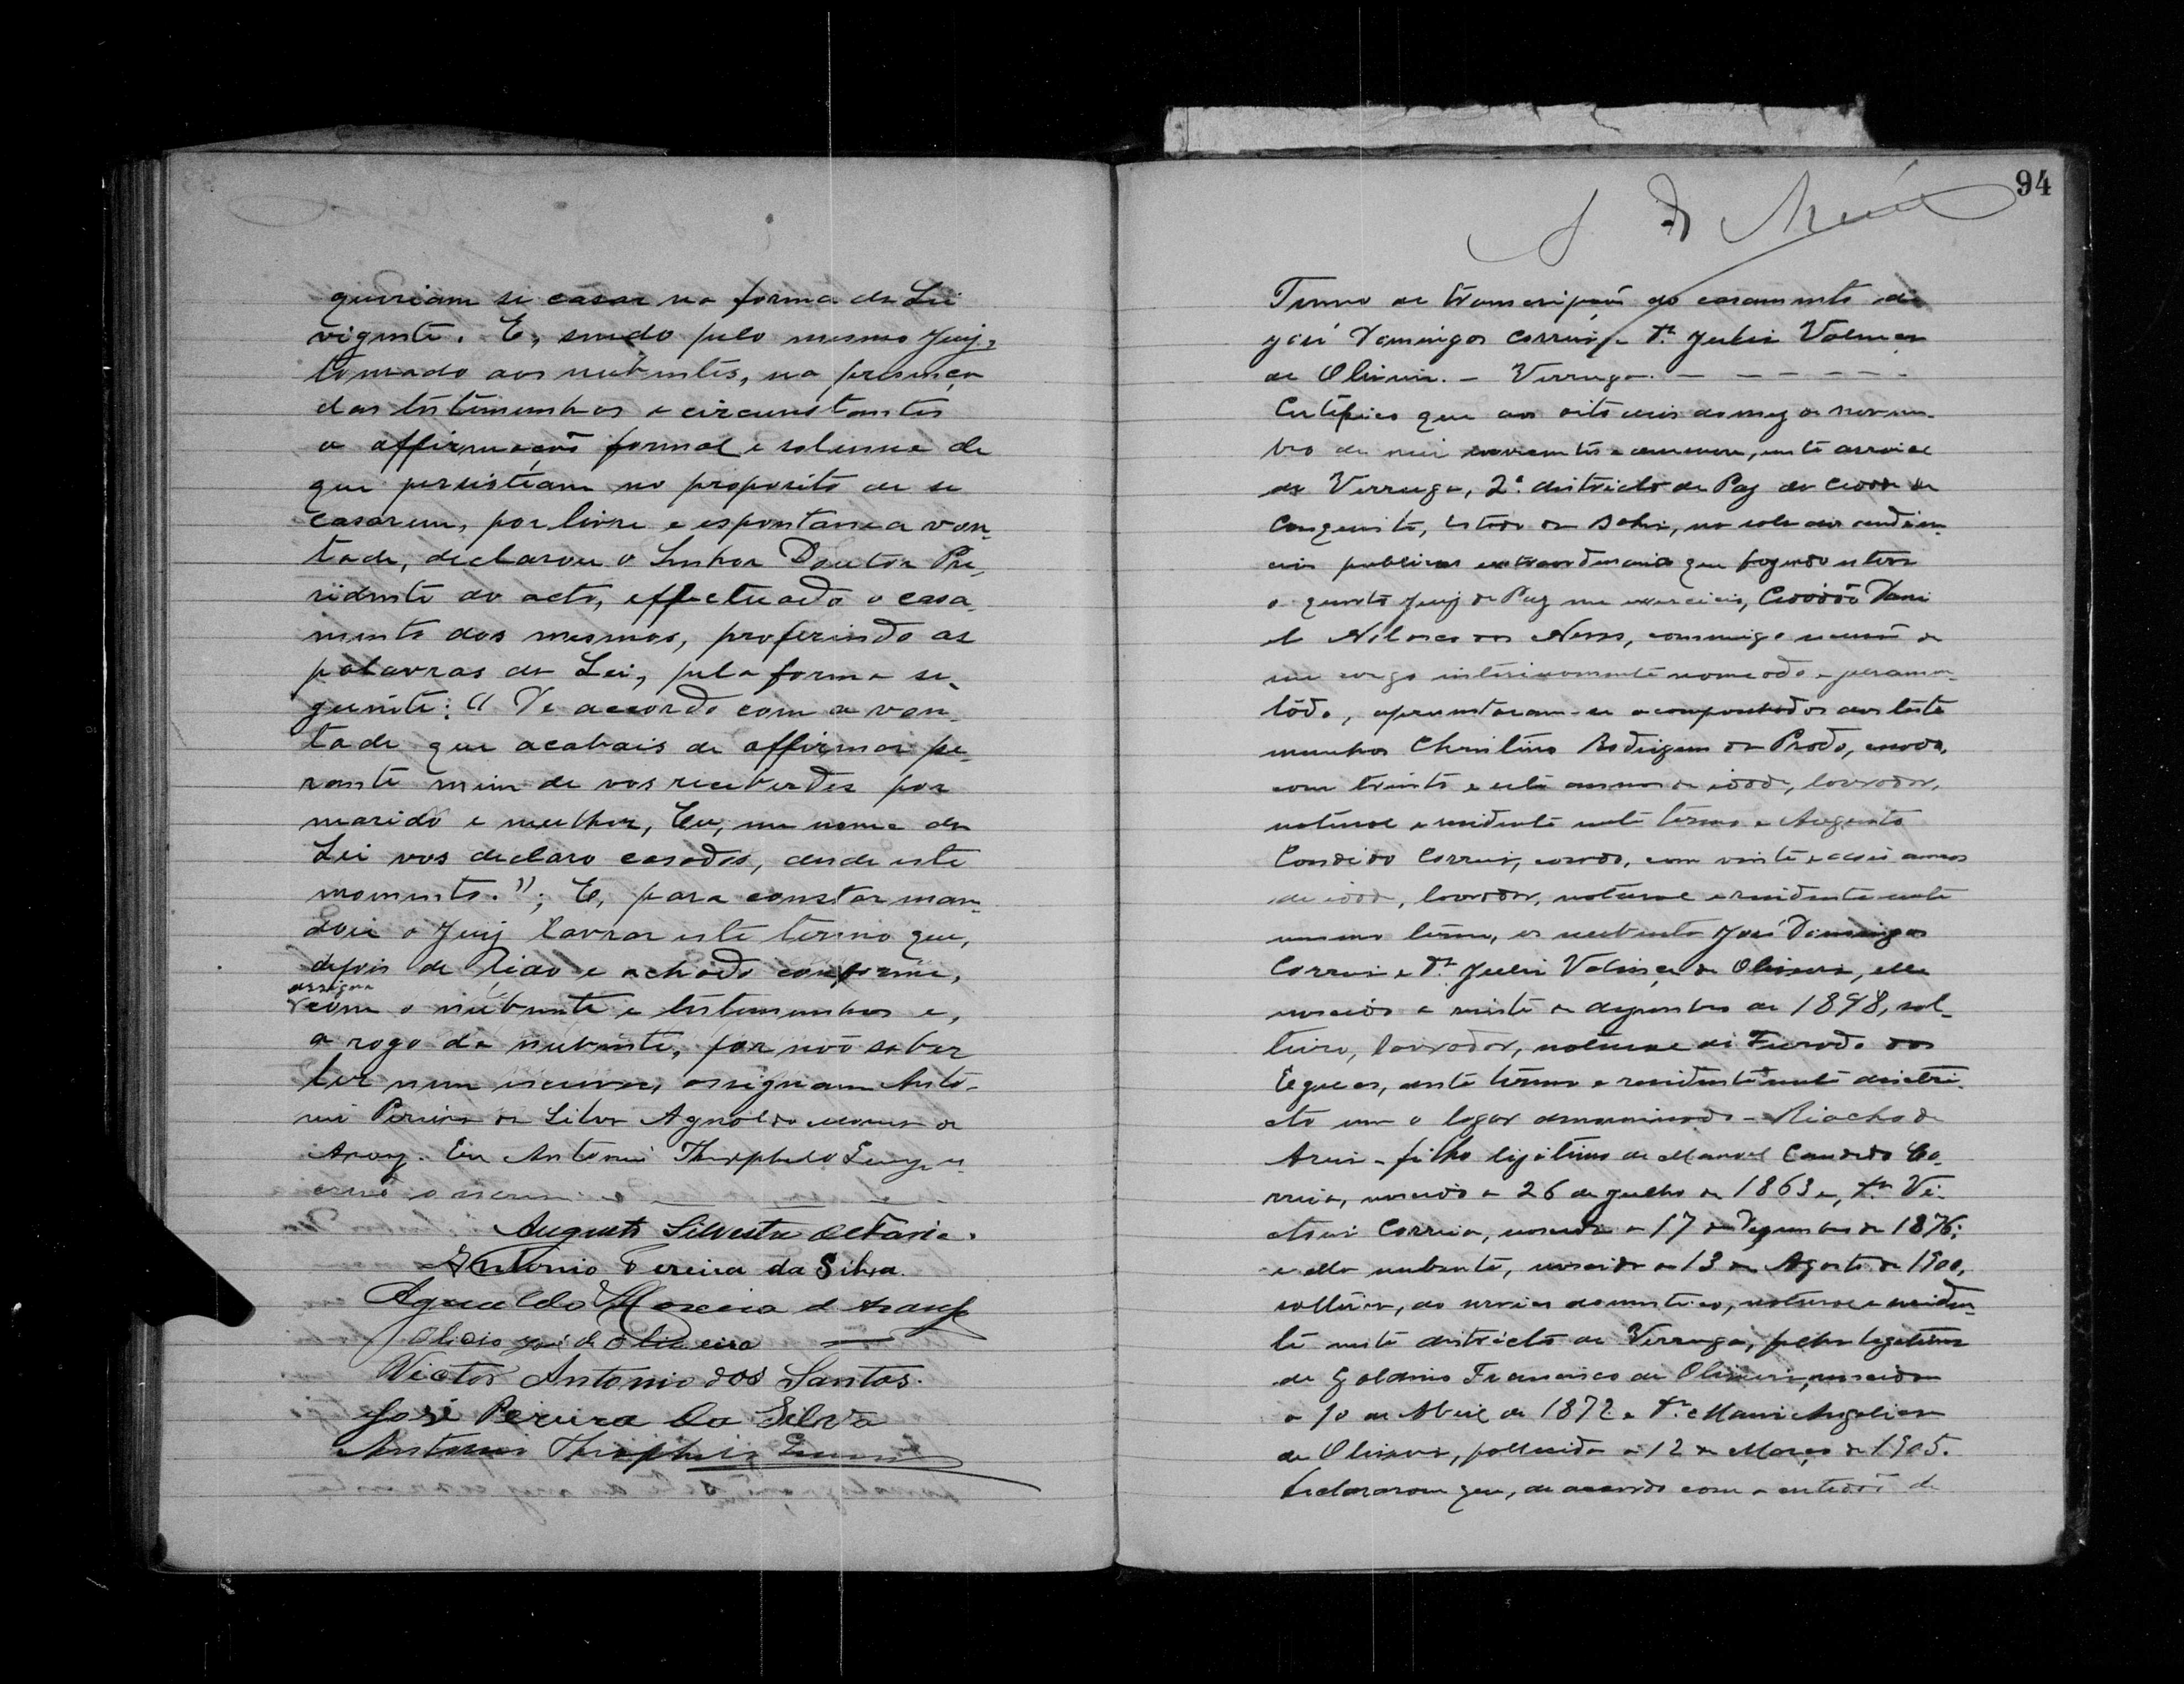 queriam se casar na forma da Lei
vigente. E, sendo pelo mesmo Juiz,
tomado aos nubentes, na presença
das testemunhas e circunstantes
a affirmação formal e solenne de
que persistiam no proposito de se
casarem, por livre e espontanea von-
tade, declarou o Senhor Doutor Pre-
sidente do acto, effectuado o casa-
mento dos mesmos, proferindo as
palavras da Lei, pela forma se-
guinte: "De accordo com a von-
tade que acabais de affirmar pe-
rante mim de vos receberdes por
marido e mulher, Eu, em nome da
Lei vos declaro casados, desde este
momento."; E, para constar man-
dou o Juiz lavrar este termo que,
depois de lido e achado conforme,
assigna
com o nubente e testemunhas e,
a rogo da nubente, por não saber
ler nem escrever, assignam Anto-
nio Pereira da Silva Agnaldo Moreira de
Araujo. Eu Antonio Theophilo
o escrevi
Augusto Silvestre de Faria.
Antonio Pereira da Silva.
Agnaldo Moreira d Araujo
Olicio José de Oliveira
Victor Antonio dos Santos.
José Pereira da Silva
Antonio Theophilo
94
Termo de transcripção do casamento de
José Domingos Correia e D.ª Julia
de Oliveira. - Verruga. - - - - - -
Certifico que aos oito dias do mez de novem-
bro de mil novecentos e dezenove, neste arraial
da Verruga, 2º. districto de Paz da Cidade de
Conquista, Estado da Bahia, na sala das audien-
cias publicas extraordinaria que fazendo estava
o quarto Juiz de Paz em exercicio, Cidadão Dani
el dos Neves, commigo escrivão de
seu cargo interinamente nomeado e juramen-
tado, apresentaram-se acompanhados das teste
munhas Christino Rodrigues do Prado, casado,
com trinta e sete annos de idade, lavrador,
natural e residente neste termo e Augusto
Candido Correia, casado, com vinte e dois annos
de idade, lavrador, natural e residente neste
mesmo termo, os nubentes José Domingos
Correia e D.ª Julia de Oliveira, elle
nascido a vinte de dezembro de 1898, sol-
teiro, lavrador, natural de Furado das
Eguas, deste termo e residente neste distri-
cto em o logar denominado - Riacho de
Areia - filho legitimo de Manoel Candido Co-
rreia, nascido a 26 de Julho de 1863 e, D.ª Vi-
ctoria Correia, nascida a 17 de Dezembro de 1876;
e ella nubente, nascida a 13 de Agosto de 1900,
solteira, de serviços domesticos, natural e residen-
te neste districto de Verruga, filha legitima
de Galdino Francisco de Oliveira, nascido
a 10 de Abril de 1872 e D.ª Maria Angelica
de Oliveira, fallecida a 12 de Março de 1905.
Declararam que, de accordo com a certidão de